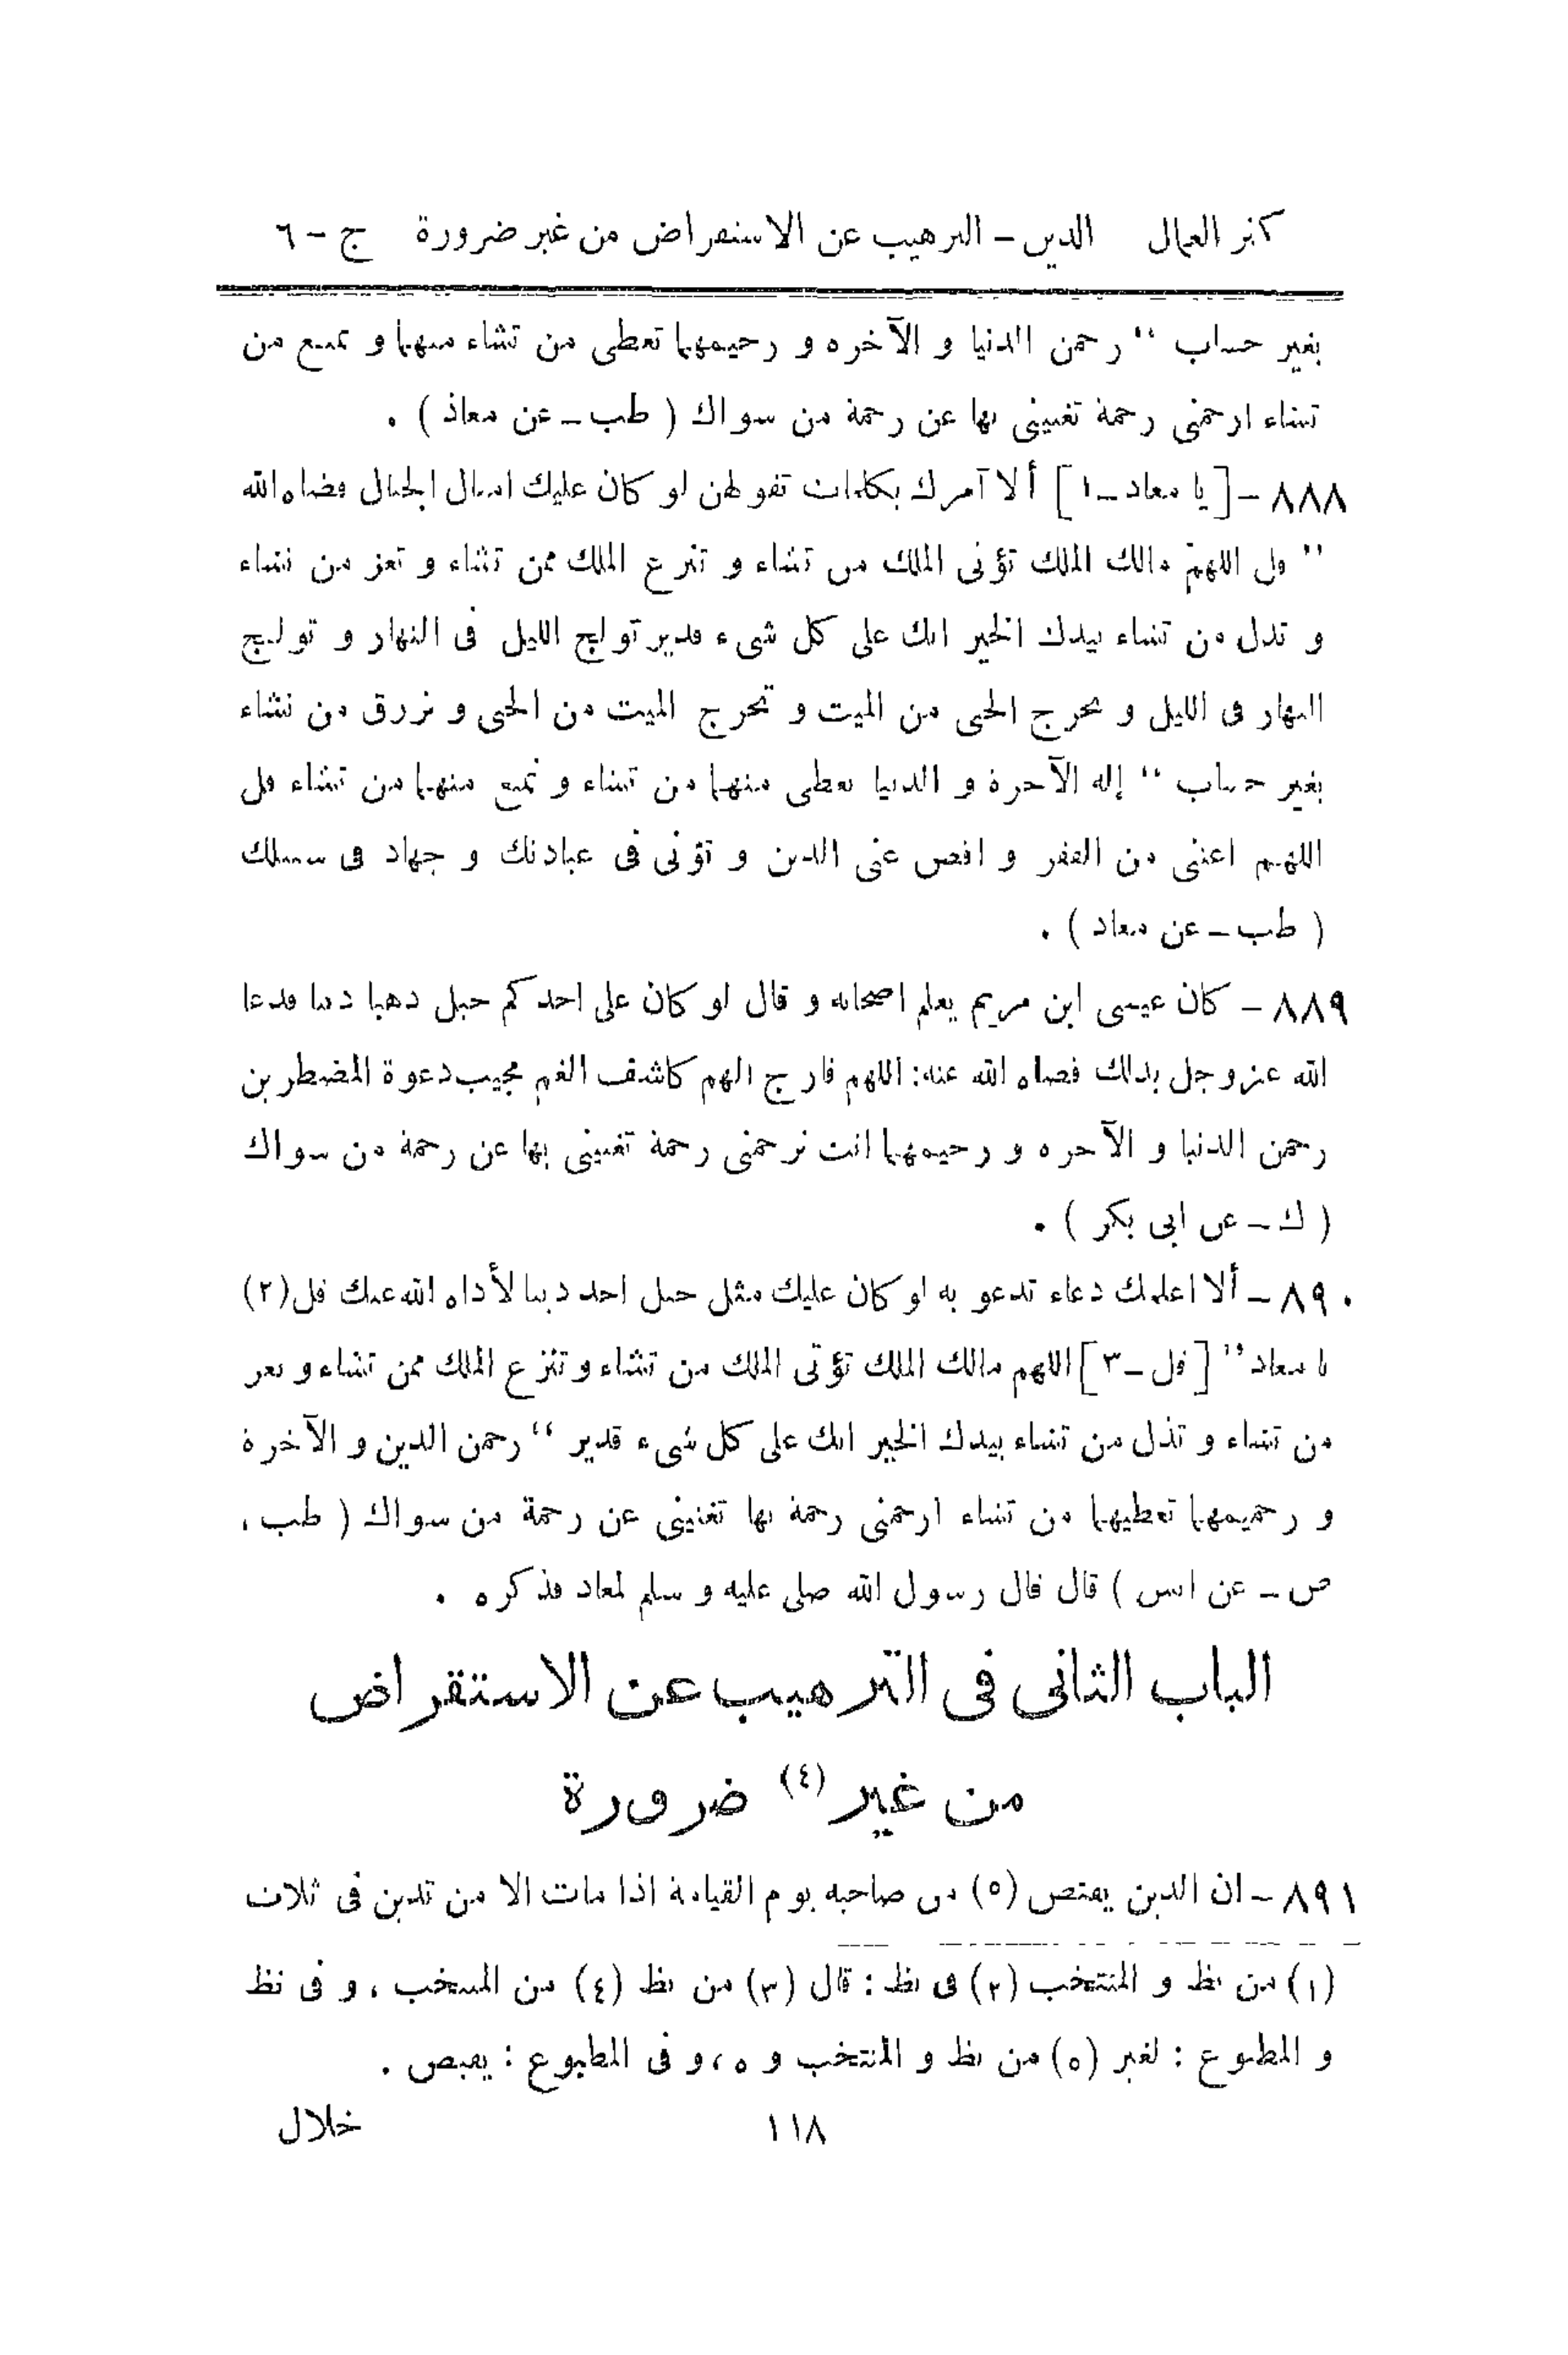 كنز العمال الدين ــ الترهيب عن الاستقراض من غير ضرورة ج – ٦
بغير حساب ‘‘ رحمن الدنيا و الآخره و رحيمهما تعطى من تشاء منهما و تمنع من
تشاء ارحمنى رحمة تغنينى بها عن رحمة من سواك ( طب ــ عن معاذ ) .
٨٨٨ – [ يا معاذ ــ ١ ] ألا آمرك بكلمات تقولهن لو كان عليك امثال الجبال قضاه الله
’’ قل اللهم مالك الملك تؤتى الملك من تشاء و تنزع الملك ممن تشاء و تعز من تشاء
و تذل من تشاء بيدك الخير انك على كل شىء قدير تولج الليل فى النهار و تولج
النهار فى الليل و تخرج الحى من الميت و تخرج الميت من الحى و ترزق من تشاء
بغير حساب ‘‘ إله الآخرة و الدنيا تعطى منهما من تشاء و تمنع منهما من تشاء قل
اللهم اغننى من الفقر و اقض عنى الدين و تؤنى فى عبادتك و جهاد فى سبيلك
( طب ــ عن معاذ ) .
٨٨٩ – كان عيسى ابن مريم يعلم اصحابه و قال لو كان على احدكم جبل ذهبا دينا فدعا
الله عز وجل بذلك قضاه الله عنه: اللهم فارج الهم كاشف الغم مجيب دعوة المضطرين
رحمن الدنيا و الآخره و رحيمهما انت ترحمنى رحمة تغنينى بها عن رحمة من سواك
( ك ــ عن ابى بكر ) .
٨٩٠ ــ ألا اعلمك دعاء تدعو به لو كان عليك مثل جبل احد دينا لأداه الله عنك قل (٢)
يا معاذ ’’ [ قل ــ ٣ ] اللهم مالك الملك تؤتى الملك من تشاء و تنزع الملك ممن تشاء و تعز
من تشاء و تذل من تشاء بيدك الخير انك على كل شىء قدير ‘‘ رحمن الدين و الآخرة
و رحميمهما تعطيهما من تشاء ارحمنى رحمة بها تغنينى عن رحمة من سواك ( طب ،
ص ــ عن انس ) قال قال رسول الله صلى عليه و سلم لمعاذ فذكره .
الباب الثانى فى الترهيب عن الاستقراض
من غير (٤) ضرورة
٨٩١ ــ ان الدين يقتص (٥) من صاحبه يوم القيامة اذا مات الا من تدين فى ثلاث
(١) من نظ و المنتخب (٢) فى نظ : قال (٣) من نظ (٤) من المنتخب ، و فى نظ
و المطبوع : لغير (٥) من نظ و المنتخب و ه ، و فى المطبوع : يقبض .
١١٨ خلال